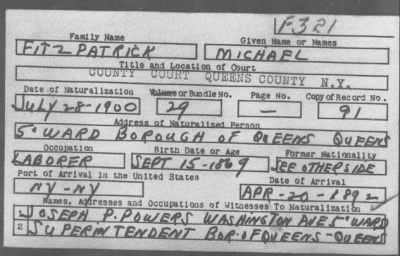 F321
Family Name Given Name or Names
FITZ PATRICK MICHAEL
Title and Location of Court
COUNTY COURT QUEENS COUNTY N.Y.
Date of Naturalization Volume or Bundle No. Page No. Copy of Record No.
JULY 28-1900 29 — 91
Address of Naturalized Person
5" WARD BOROUGH OF QUEENS QUEENS
Occupation Birth Date or Age Former Nationality
LABORER SEPT 15-1869 SEE OTHERSIDE
Port of Arrival in the United States Date of Arrival
NY-NY APR-20-1892
Names, Addresses and Occupations of Witnesses To Naturalization
JOSEPH P. POWERS WASHINGTON AVE 5" WARD
2 SUPERINTENDENT BOR. OF QUEENS-QUEENS